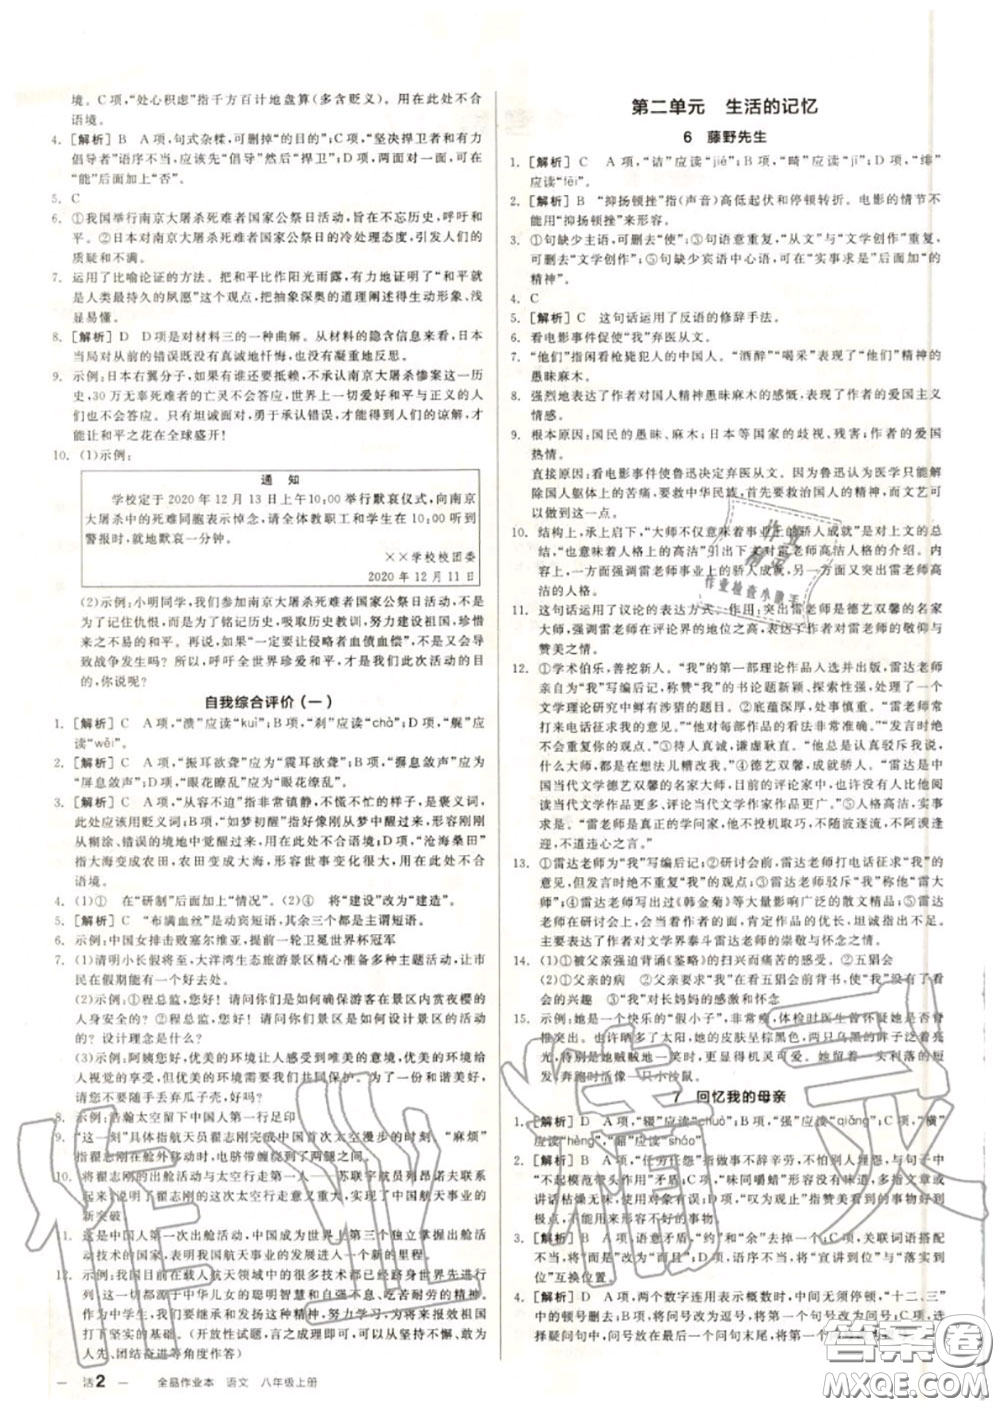 境。C项，“处心积虑”指千方百计地盘算(多含贬义)。用在此处不合
语境。
4. [解析] B A项，句式杂糅，可删掉“的目的”；C项，“坚决捍卫者和有力
倡导者”语序不当，应该先“倡导”然后“捍卫”；D项，两面对一面，可在
“能”后面加上“否”。
5. C
6. ①我国举行南京大屠杀死难者国家公祭日活动，旨在不忘历史，呼吁和
平。②日本对南京大屠杀死难者国家公祭日的冷处理态度，引发人们的
质疑和不满。
7. 运用了比喻论证的方法。把和平比作阳光雨露，有力地论证了“和平就
是人类最持久的夙愿”这个观点，把抽象深奥的道理阐述得生动形象、浅
显易懂。
8. [解析] D D项是对材料三的一种曲解。从材料的隐含信息来看，日本
当局对从前的错误既没有真诚地忏悔，也没有凝重地反思。
9. 示例：日本右翼分子，如果你还要抵赖，不承认南京大屠杀惨案这一历
史，30万无辜死难者的亡灵不会答应，世界上一切爱好和平与正义的人
们也不会答应。只有坦诚面对，勇于承认错误，才能得到人们的谅解，才
能让和平之花在全球盛开！
10. (1)示例：
通 知
学校定于2020年12月13日上午10:00举行默哀仪式，向南京
大屠杀中的死难同胞表示悼念，请全体教职工和学生在10:00听到
警报时，就地默哀一分钟。
××学校校团委
2020年12月11日
(2)示例：小明同学，我们参加南京大屠杀死难者国家公祭日活动，不是
为了记住仇恨，而是为了铭记历史、吸取历史教训，努力建设祖国，珍惜
来之不易的和平。再说，如果“一定要让侵略者血债血偿”，那不又会导
致战争发生吗？所以，呼吁全世界珍爱和平，才是我们此次活动的目
的，你说呢？
自我综合评价(一)
1. [解析] C A项，“溃”应读“kuì”；B项，“刹”应读“chà”；D项，“艉”应
读“wěi”。
2. [解析] C A项，“振耳欲聋”应为“震耳欲聋”；B项，“摒息敛声”应为
“屏息敛声”；D项，“眼花嘹乱”应为“眼花缭乱”。
3. [解析] C A项，“从容不迫”指非常镇静，不慌不忙的样子，是褒义词，
此处应该用贬义词；B项，“如梦初醒”指好像刚从梦中醒过来，形容刚刚
从糊涂、错误的境地中觉醒过来，用在此处不合语境；D项，“沧海桑田”
指大海变成农田，农田变成大海，形容世事变化很大，用在此处不合
语境。
4. (1)① 在“研制”后面加上“情况”。(2)④ 将“构建”改为“建造”。
5. [解析] C “布满血丝”是动宾短语，其余三个都是主谓短语。
6. 示例：中国女排击败塞尔维亚，提前一轮卫冕世界杯冠军
7. (1)清明小长假将至，大洋湾生态旅游景区精心准备多种主题活动，让市
民在假期能有一个好去处。
(2)示例：①程总监，您好！请问你们是如何确保游客在景区内赏夜樱的
人身安全的？②程总监，您好！请问你们景区是如何设计景区的活动
的？设计理念是什么？
(3)示例：阿姨您好，优美的环境让人感受到唯美的意境，优美的环境让人得
到视觉的享受，但优美的环境需要我们共同保护。为了和谐美好，
请您不要随手丢弃瓜子壳，好吗？
8. 示例：浩瀚太空留下中国人第一行足印
9. “这一刻”具体指航天员翟志刚完成中国首次太空漫步的时刻，“麻烦”
指翟志刚在舱外移动时，电脐带缠绕到了两腿之间。
10. 将翟志刚的出舱活动与太空行走第一人——苏联宇航员列昂诺夫联系
起来，说明了翟志刚的这次太空行走意义重大，实现了中国航天事业的
新突破。
11. 这是中国人第一次出舱活动，中国成为世界上第三个独立掌握出舱活
动技术的国家，中国航天事业的发展进入一个新的里程。
12. 示例：中国目前在载人航天领域中的很多技术都已经跻身世界先进行
列，这些体现了中华儿女的聪明智慧和自强不息、吃苦耐劳的精神，作
为中学生，我们要继承和发扬这种精神，努力学习，为将来建设祖国打
下坚实的基础。(开放性试题，言之成理即可，可以从坚持不懈、敢为
人先、团结奋进等角度作答)
活2 全品作业本 语文 八年级上册
第二单元 生活的记忆
6 藤野先生
1. [解析] C A项，“诘”应读“jié”；B项，“畸”应读“jī”；D项，“绯”
应读“fēi”。
2. [解析] B “抑扬顿挫”指(声音)高低起伏和停顿转折。电影的情节不
能用“抑扬顿挫”来形容。
3. ①句缺少主语，可删去“使”；③句语意重复，“从文”与“文学创作”重复，
可删去“文学创作”；⑤句缺少宾语中心语，可在“实事求是”后面加上“的
精神”。
4. C
5. [解析] C 这句话运用了反语的修辞手法。
6. 看电影事件促使“我”弃医从文。
7. “他们”指闲看枪毙犯人的中国人。“酒醉”“喝采”表现了“他们”精神的
愚昧麻木。
8. 强烈地表达了作者对国人精神愚昧麻木的感慨，表现了作者的爱国主义
情感。
9. 根本原因：国民的愚昧、麻木；日本等国家的歧视、残害；作者的爱国
热情。
直接原因：看电影事件使鲁迅决定弃医从文。因为鲁迅认为医学只能解
除国人躯体上的苦痛，要救中华民族，首先要救治国人的精神，而文艺可
以做到这一点。
10. 结构上，承上启下，“大师不仅意味着事业上的骄人成就”是对上文的总
结，“也意味着人格上的高洁”引出下文对雷老师高洁人格的介绍。内容
上，一方面强调雷老师事业上的骄人成就，另一方面强调雷老师品格
的高洁。
11. 这句话运用了议论的表达方式。作用：突出雷老师是德艺双馨的名家
大师，强调雷老师在评论界的地位之高，表现作者对雷老师的敬仰与
赞美之情。
12. ①学术伯乐，善挖新人。“我”的第一部理论作品入选并出版，雷达老师
亲自为“我”写编后记，称赞“我”的书论题新颖、工程浩大，探索了一个
文学理论研究中鲜有涉猎的题目。②底蕴深厚，处事慎重。“雷老师常
打来电话征求我的意见。”“他对每部作品的看法非常准确。”“从没有
重复你我的观点。”③待人真诚，谦虚耿直。“他总是认真脱发听我说，
然后……”④德艺双馨，成就骄人。“雷老师是
中国当代文学德艺双馨的名家大师，目前的评论家中，也无人在发现发
掘当代文学作品和当代文学作家作出更广。”⑤人格高洁，实事
求是。“雷老师是真正的学问家，他不趋炎附势，不随波逐流，不阿谀逢
迎，不一味追求自己的高度。”
13. ①雷达老师为“我”写编后记；②研讨会前，雷达老师打电话征求“我”的
意见；③不重复“我”的观点；④
《韩金菊》等大量影响广泛的散文精品；⑤雷达
老师在研讨会上，肯定作品的优长，坦诚指出不足。
主旨：表现了作者对文学界泰斗雷达老师的崇敬与怀念之情。
14. (1)①被父亲强迫背诵《鉴略》的扫兴而痛苦的感受。②五猖会
(2)①父亲的病 ②父亲在“我”去看五猖会前背书，使“我”没有了看会
的兴趣 ③“我”对长妈妈的感激和怀念
15. 示例：她是一个快乐的“假小子”，非常瘦，体检时医生曾怀疑她没有脊
椎突出。也许晒多了太阳，她的皮肤呈棕黑色，乌亮的眸子泛着亮
光，特别是她贼贼地一笑时，更显得聪明。她留着一头利落的短
发，奔跑时活像一只小沙鼠。
7 回忆我的母亲
1. [解析] D A项，“辍”应读“chuò”；B项，“强”应读“qiǎng”；C项，“横”
应读“hèng”，“韶”应读“sháo”。
2. [解析] D A项，“任劳任怨”指做事不辞辛劳，不怕别人埋怨，与句子中
“不起模范带头作用”矛盾；B项，“味同嚼蜡”形容没有味道，多指文章或
讲话枯燥无味，使用对象有误；C项，“叹为观止”指赞美看到的事物好到
极点，用在此处形容不好的事物，不妥。
3. [解析] B A项，语意矛盾，“约”和“余”去掉一个；C项，关联词语搭配
不当，将“而是”改为“而且”；D项，语序不当，将“宣讲到位”与“落实到
位”互换位置。
4. [解析] B A项，两个数字连用表示概数时，中间不停顿，“十二、三”中的
顿号删去；B项，问号改为逗号，第一个句号改为问号；C项，
选择问句中，问号放在最后一个问句末尾，将第一个问号改为逗号。
作业精灵
作业检查小助手
作业精灵
答案圈
MXQE.COM